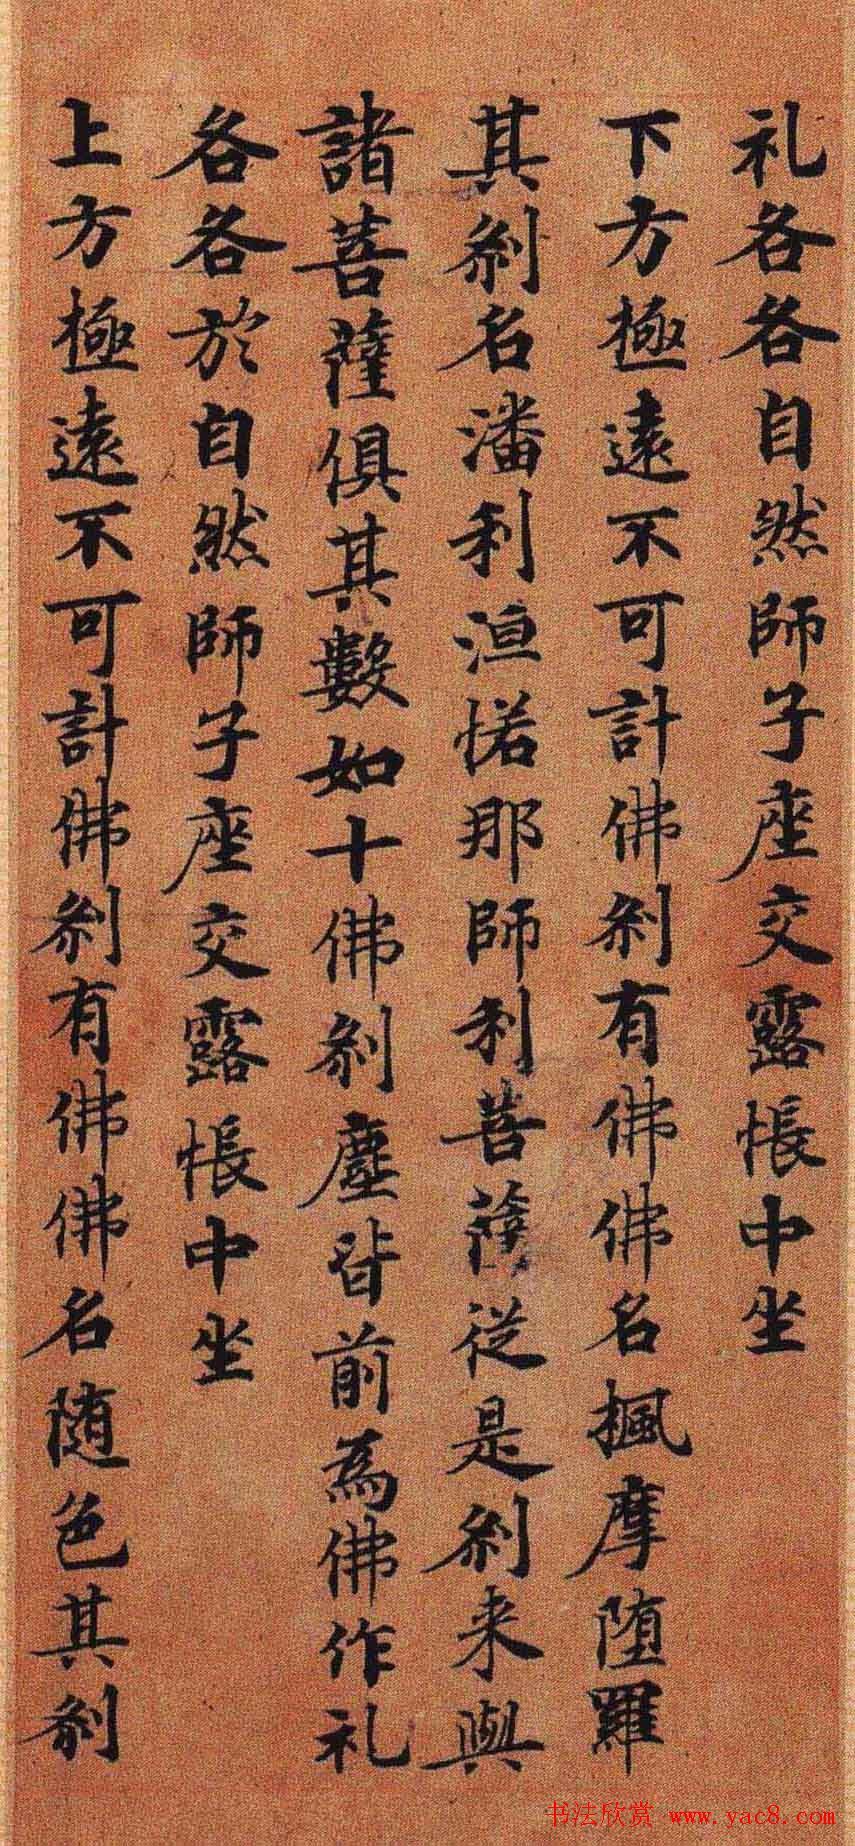 礼各各自然師子座交露帳中坐
下方極遠不可計佛刹有佛佛名楓摩堕羅
其刹名潘利洹偌那師利菩薩従是刹来與
諸菩薩俱其數如十佛刹塵皆前為佛作礼
各各於自然師子座交露帳中坐
上方極遠不可計佛刹有佛佛名随色其刹
书法欣赏 www.yac8.com